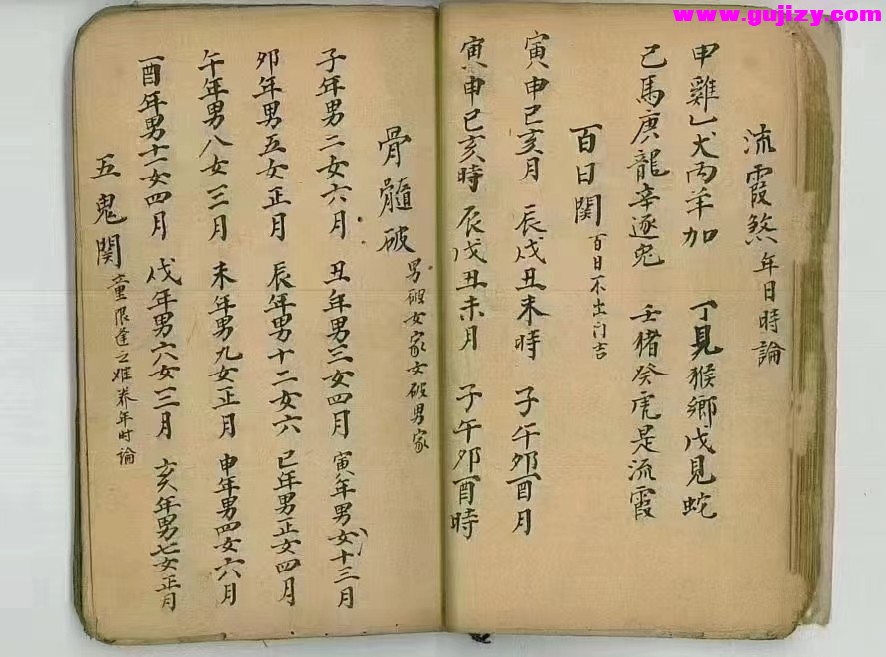 www.gujizy.com
流霞煞 年日時論
申雞乙犬丙羊加 丁見猴鄉戊見蛇
己馬庚龍辛逐兔 壬猪癸虎是流霞
百日関 百日不出门吉
寅申巳亥月 辰戌丑未時 子午卯酉月
寅申巳亥時 辰戌丑未月 子午卯酉時
骨髓破 男破女家女破男家
子年男二女六月 丑年男三女四月 寅年男女十三月
卯年男五女正月 辰年男十二女六 巳年男正女四月
午年男八女三月 未年男九女正月 申年男四女六月
酉年男十一女四月 戌年男六女三月 亥年男七女正月
五鬼関 童限逢之难养年时論